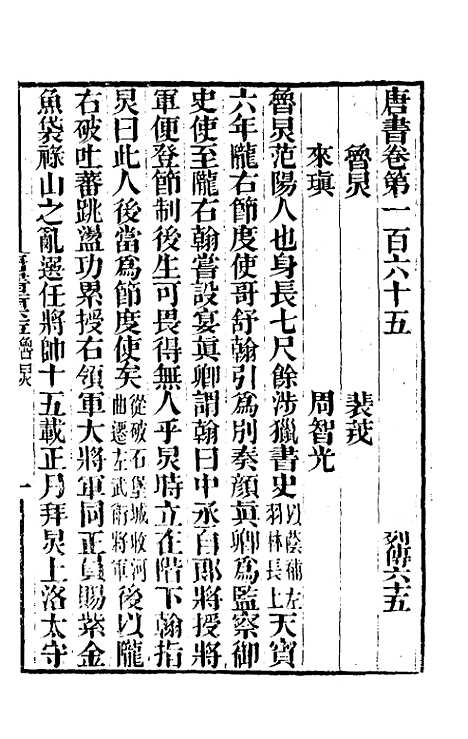 唐書卷第一百六十五 列傳六十五
魯炅 裴茙
來瑱 周智光
魯炅范陽人也身長七尺餘涉獵書史以蔭補左羽林長上天寶
六年隴右節度使哥舒翰引爲別奏顏眞卿爲監察御
史使至隴右翰嘗設宴眞卿謂翰曰中丞自郎將授將
軍便登節制後生可畏得無人乎炅時立在階下翰指
炅曰此人後當爲節度使矣從破石堡城收河曲遷左武衛將軍後以隴
右破吐蕃跳盪功累授右領軍大將軍同正員賜紫金
魚袋祿山之亂選任將帥十五載正月拜炅上洛太守